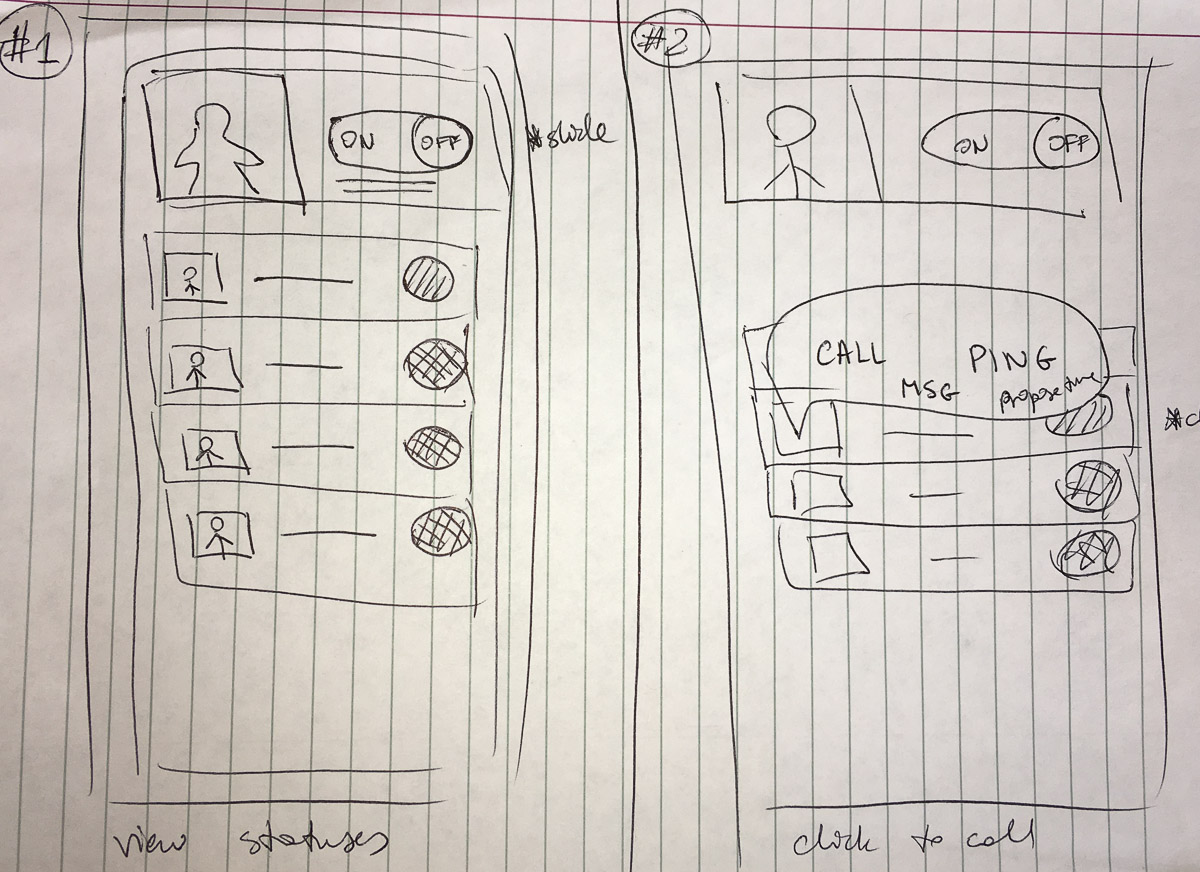 #1
ON OFF
*slide
view statuses
#2
ON OFF
CALL PING
MSG propose time
click to call